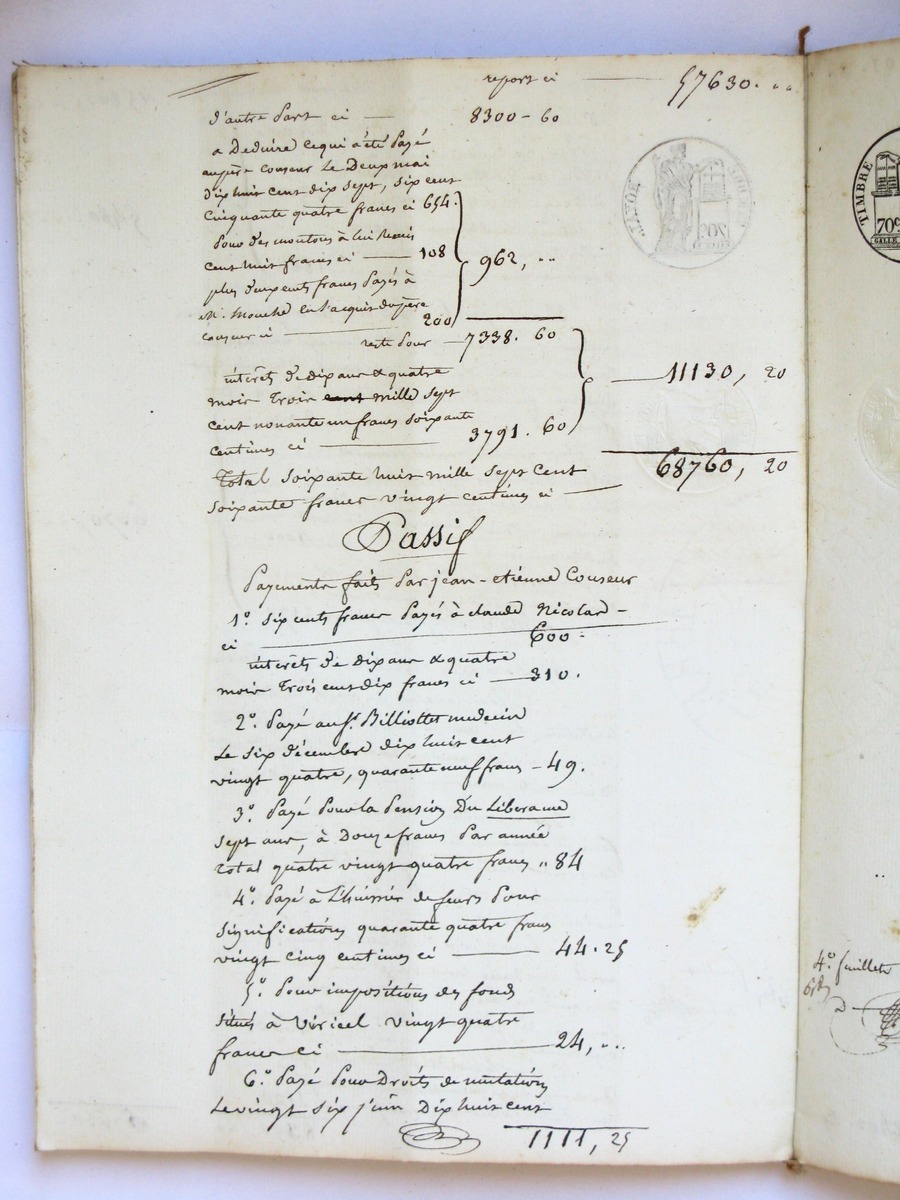 report ci 57630. "
d'autre Part ci 8300 - 60
a Deduire cequi a été Payé
au père Couseur Le Deux mai
dix huit cent dix sept, six cent
cinquante quatre francs ci 654.
Pour des moutons à lui
cent huit francs ci 108
962, "
plus deux cents francs Payés à
M. Mouche en l'acquis du père
couseur ci 200
reste Pour 7338. 60
intérêts de dix ans & quatre
mois trois cent mille sept
11130, 20
cent nonante un francs soixante
centimes ci 3791. 60
Total soixante huit mille sept cent 68760, 20
soixante francs vingt centimes ci
Passif
Payements faits Par jean-etienne Couseur
1°. six cents francs Payés à claude Nicolas
ci 600.
intérêts de dix ans & quatre
mois trois cent dix francs ci 310.
2°. Payé au Sr. Billiottet medecin
Le six décembre dix huit cent
vingt quatre, quarante neuf francs - 49.
3°. Payé Pour la Pension Du Libera me
sept ans, à Douze francs Par année
total quatre vingt quatre francs " 84
4°. Payé à L'huissier de feurs Pour
significations quarante quatre francs
vingt cinq centimes ci 44. 25
5°. Pour impositions des fonds
situés à Viricel vingt quatre
francs ci 24, "
6°. Payé Pour Droits de mutations
Le vingt six juin Dix huit cent
1111, 25
TIMBRE
70c
4°. feuillets